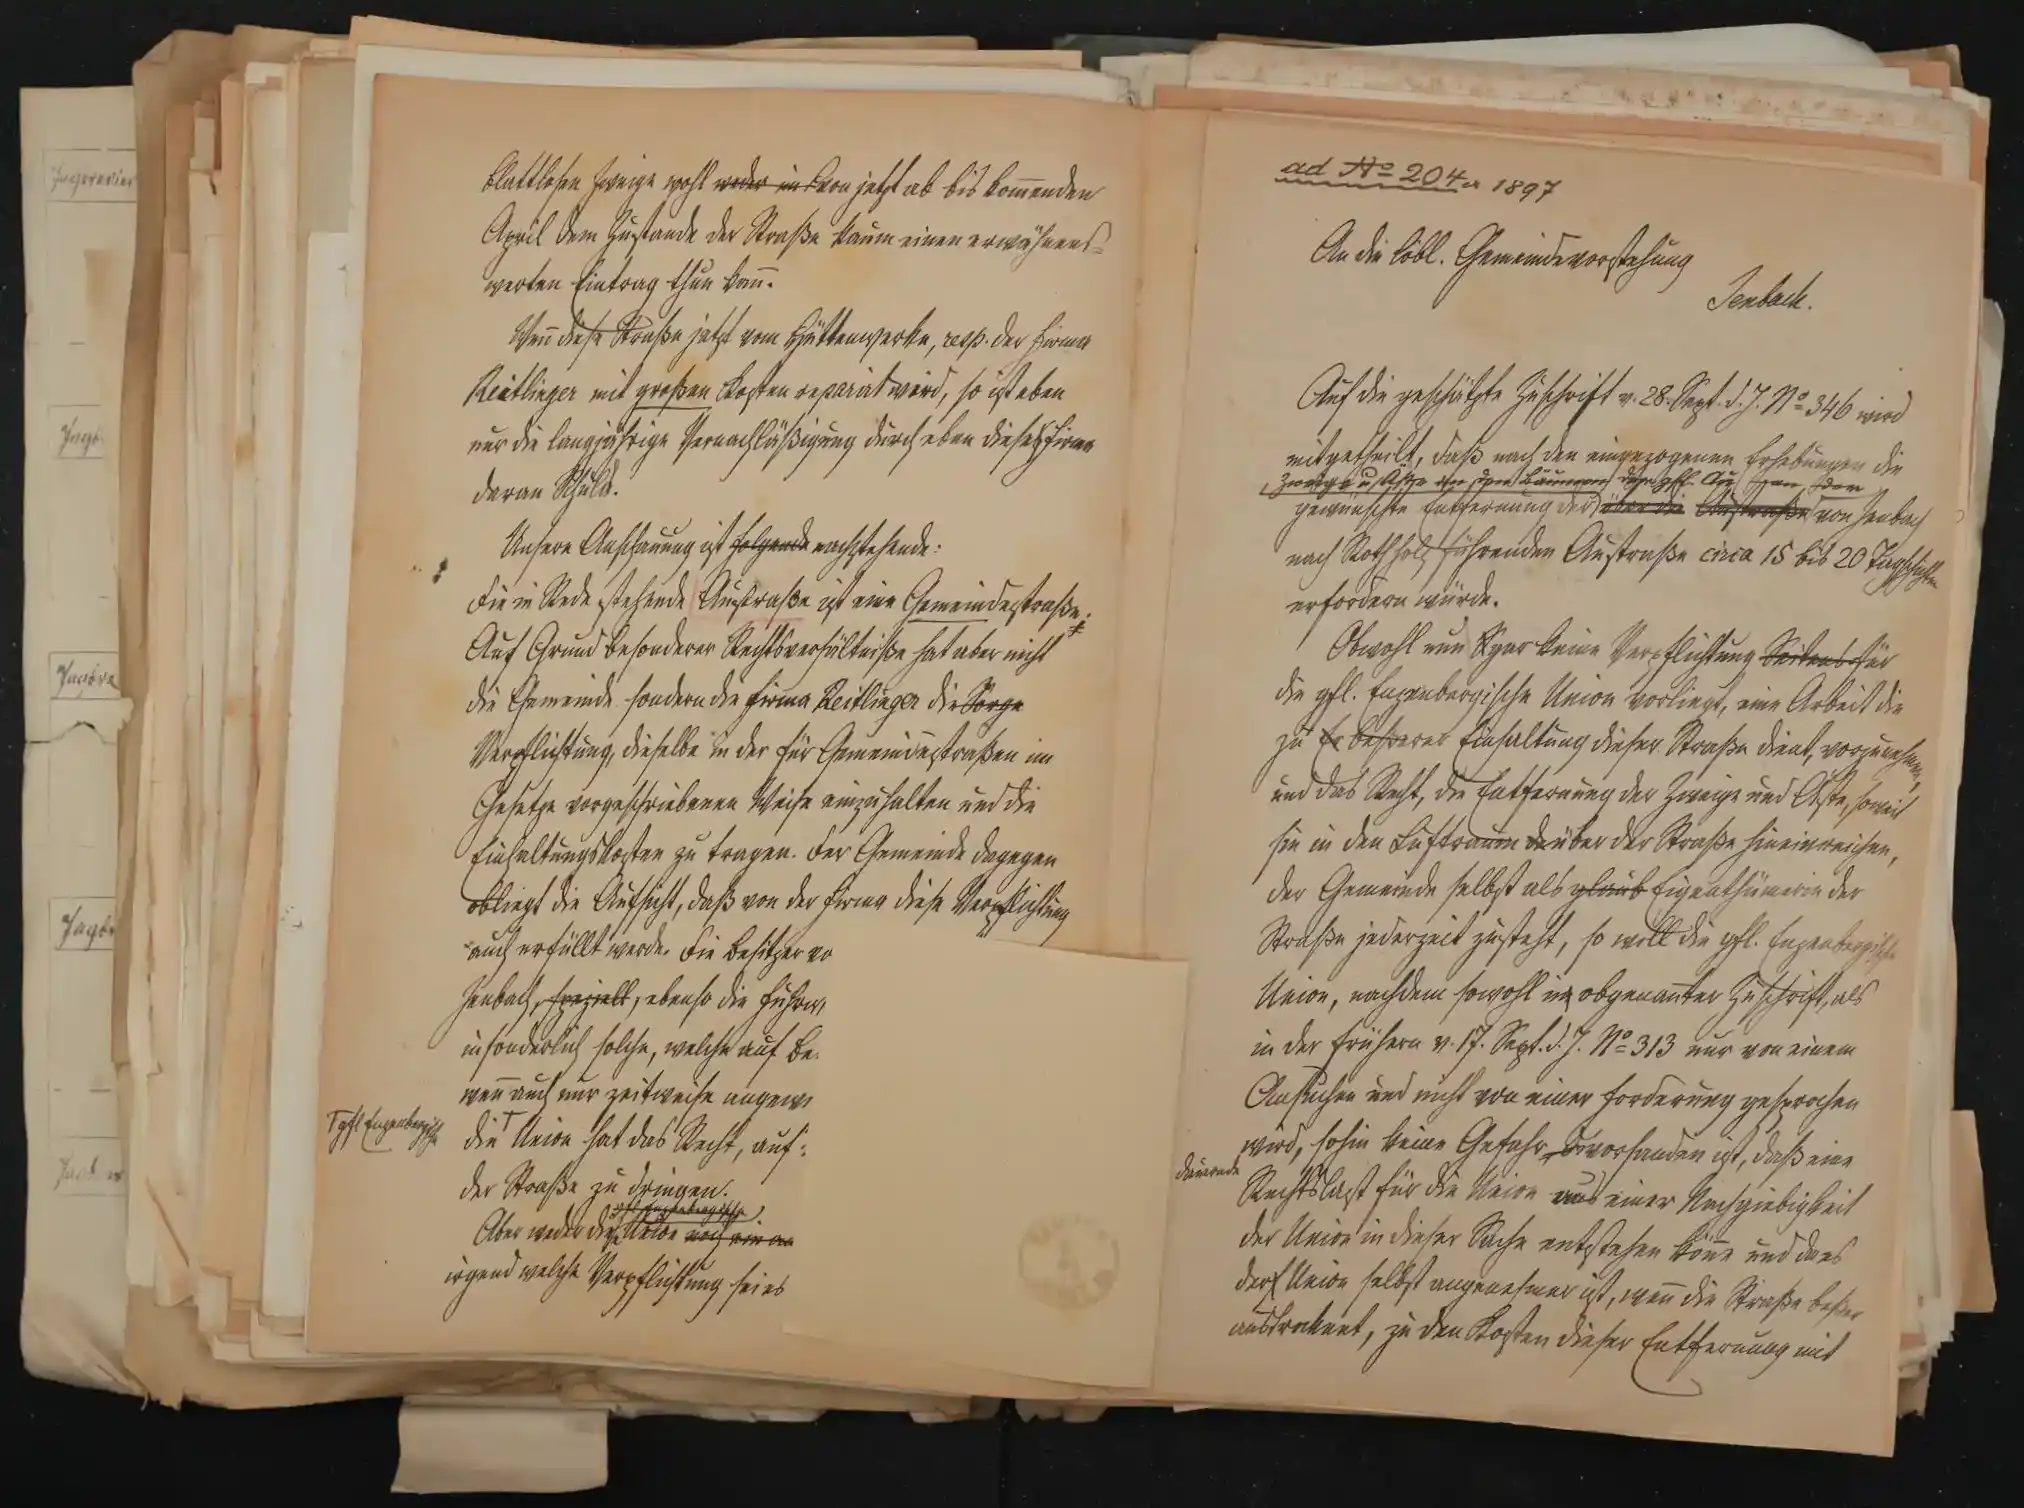 blattlosen Zweige wohl weder im von jetzt ab bis kom̄enden
April dem Zustande der Straße kaum einen erwähnens-
werten Eintrag thun kan̄.
Wen̄ diese Straße jetzt vom Hüttenwerke, resp. der Firma
Reitlinger mit großen Kosten reparirt wird, so ist eben
nur die langjährige Vernachläßigung durch eben diese Firma
daran Schuld.
Unsere Anschauung ist folgende nachstehende:
Die in Rede stehende Austraße ist eine Gemeindestraße.
Auf Grund besonderer Rechtsverhältniße hat aber nicht
die Gemeinde sondern die Firma Reitlinger die Sorge
Verpflichtung, dieselbe in der für Gemeindestraßen im
Gesetze vorgeschriebenen Weise einzuhalten und die
Einhaltungskosten zu tragen. Der Gemeinde dagegen
obliegt die Aufsicht, daß von der Firma diese Verpflichtung
auch erfüllt werde. Die Besitzer vo
Jenbach, speziell, ebenso die Fuhrw
insonderlich solche, welche auf Be
wen̄ auch nur zeitweise angew
T gfl Enzenbergische
die T Union hat das Recht, auf
der Straße zu dringen.
gfl. Enzenbergische
Aber weder diese Union noch ein an
irgend welche Verpflichtung sei es
Jagdrevier
Jagd
ad No 204 a 1897
An die löbl. Gemeindevorstehung
Jenbach.
Auf die geschätzte Zuschrift v. 28. Sept. d. J. No 346 wird
mitgetheilt, daß nach den eingezogenen Erhebungen die
Zweige u. Äste an den Bäumen der gfl. Au von der
gewünschte Entfernung der über die Austraße von Jenbach
nach Rothholz führenden Austraße circa 15 bis 20 Tagschichten
erfordern würde.
Obwohl nun gar keine Verpflichtung Seitens für
die gfl. Enzenbergische Union vorliegt, eine Arbeit die
zu besserer Einhaltung dieser Straße dient, vorzunehmen,
und das Recht, die Entfernung der Zweige und Äste, soweit
sie in den Luftraum über der Straße hineinreichen,
der Gemeinde selbst als glaub Eigenthümerin der
Straße jederzeit zusteht, so will die gfl. Enzenbergische
Union, nachdem sowohl in obgenan̄ter Zuschrift, als
in der frühern v. 17. Sept. d. J. No 313 nur von einem
Ansuchen und nicht von einer Forderung gesprochen
wird, sohin keine Gefahr vorhanden ist, daß eine
dauernde
Rechtslast für die Union aus einer Nachgiebigkeit
der Union in dieser Sache entstehen kön̄e und da es
der Union selbst angenehmer ist, wen̄ die Straße beßer
austroknet, zu den Kosten dieser Entfernung mit